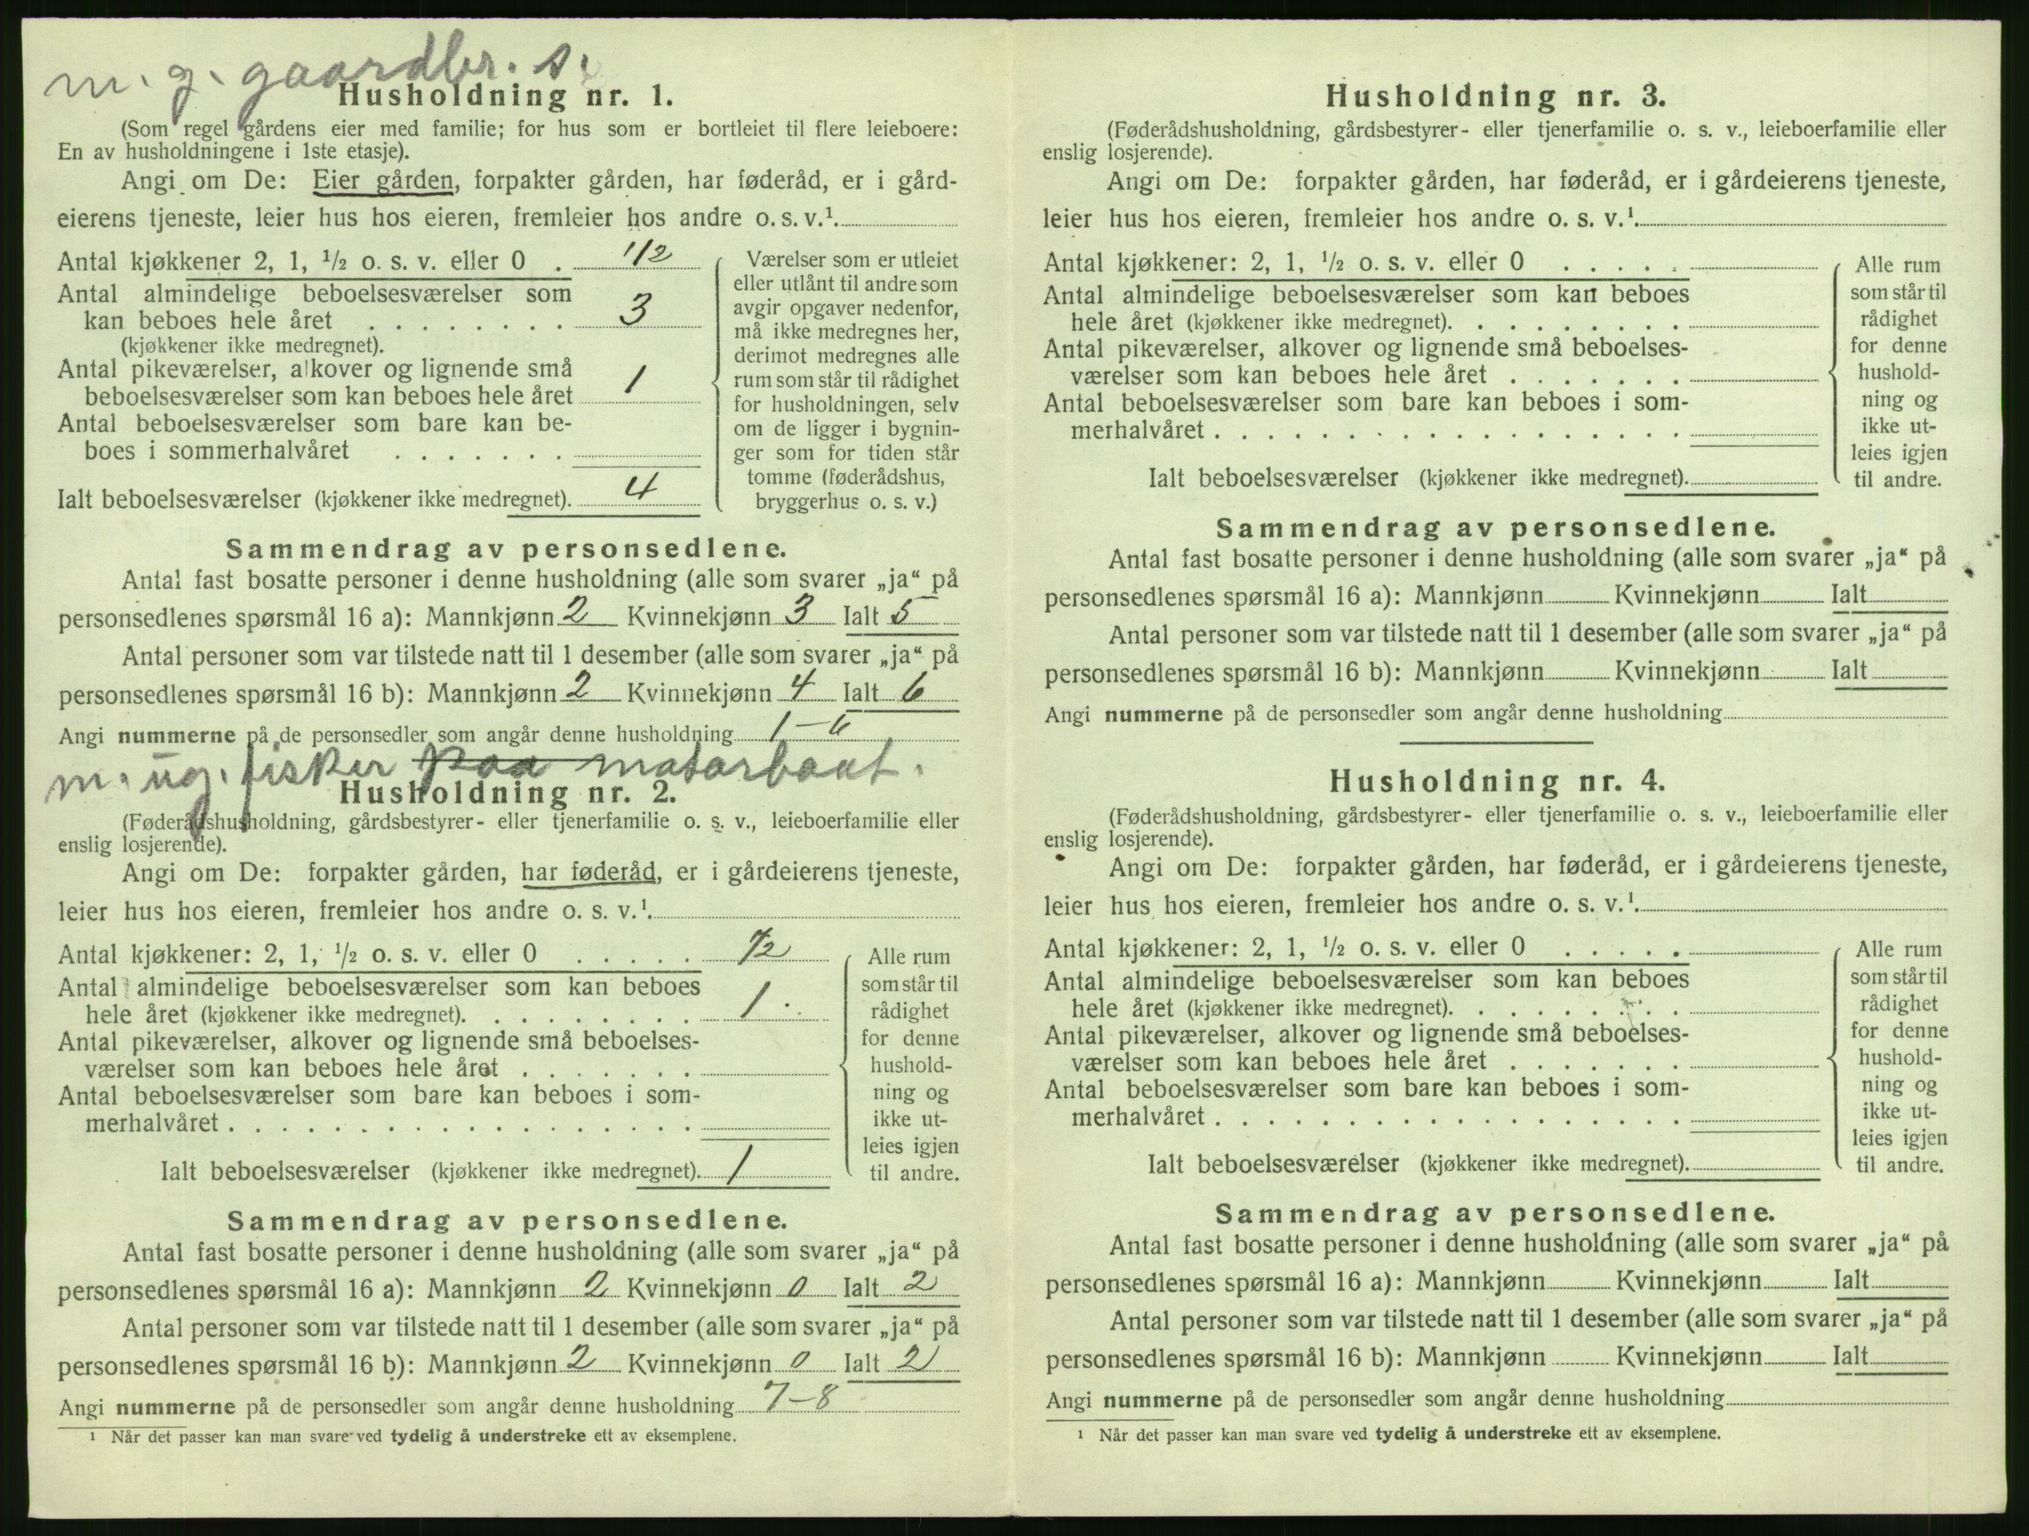 m. g. gaardbr. s.
Husholdning nr. 1.
(Som regel gårdens eier med familie; for hus som er bortleiet til flere leieboere:
En av husholdningene i 1ste etasje).
Angi om De: Eier gården, forpakter gården, har føderåd, er i gård-
eierens tjeneste, leier hus hos eieren, fremleier hos andre o. s. v.¹.
Antal kjøkkener 2, 1, ½ o. s. v. eller 0 . 1/2
Antal almindelige beboelsesværelser som
kan beboes hele året . . . . . . . . 3
(kjøkkener ikke medregnet).
Antal pikeværelser, alkover og lignende små
beboelsesværelser som kan beboes hele året 1
Antal beboelsesværelser som bare kan be-
boes i sommerhalvåret . . . . . . .
Ialt beboelsesværelser (kjøkkener ikke medregnet). 4
Værelser som er utleiet
eller utlånt til andre som
avgir opgaver nedenfor,
må ikke medregnes her,
derimot medregnes alle
rum som står til rådighet
for husholdningen, selv
om de ligger i bygnin-
ger som for tiden står
tomme (føderådshus,
bryggerhus o. s. v.)
Sammendrag av personsedlene.
Antal fast bosatte personer i denne husholdning (alle som svarer „ja“ på
personsedlenes spørsmål 16 a): Mannkjønn 2 Kvinnekjønn 3 Ialt 5
Antal personer som var tilstede natt til 1 desember (alle som svarer „ja“ på
personsedlenes spørsmål 16 b): Mannkjønn 2 Kvinnekjønn 4 Ialt 6
Angi nummerne på de personsedler som angår denne husholdning 1–6
m. ug. fisker paa motorbaat.
Husholdning nr. 2.
(Føderådshusholdning, gårdsbestyrer- eller tjenerfamilie o. s. v., leieboerfamilie eller
enslig losjerende).
Angi om De: forpakter gården, har føderåd, er i gårdeierens tjeneste,
leier hus hos eieren, fremleier hos andre o. s. v.¹.
Antal kjøkkener: 2, 1, ½ o. s. v. eller 0 . . . . . 1/2
Antal almindelige beboelsesværelser som kan beboes
hele året (kjøkkener ikke medregnet). . . . . . . . . 1
Antal pikeværelser, alkover og lignende små beboelses-
værelser som kan beboes hele året . . . . . . .
Antal beboelsesværelser som bare kan beboes i som-
merhalvåret . . . . . . . . . . . . . . . . . .
Ialt beboelsesværelser (kjøkkener ikke medregnet). 1
Alle rum
som står til
rådighet
for denne
hushold-
ning og
ikke ut-
leies igjen
til andre.
Sammendrag av personsedlene.
Antal fast bosatte personer i denne husholdning (alle som svarer „ja“ på
personsedlenes spørsmål 16 a): Mannkjønn 2 Kvinnekjønn 0 Ialt 2
Antal personer som var tilstede natt til 1 desember (alle som svarer „ja“ på
personsedlenes spørsmål 16 b): Mannkjønn 2 Kvinnekjønn 0 Ialt 2
Angi nummerne på de personsedler som angår denne husholdning 7–8
¹ Når det passer kan man svare ved tydelig å understreke ett av eksemplene.
Husholdning nr. 3.
(Føderådshusholdning, gårdsbestyrer- eller tjenerfamilie o. s. v., leieboerfamilie eller
enslig losjerende).
Angi om De: forpakter gården, har føderåd, er i gårdeierens tjeneste,
leier hus hos eieren, fremleier hos andre o. s. v.¹.
Antal kjøkkener: 2, 1, ½ o. s. v. eller 0 . . . . .
Antal almindelige beboelsesværelser som kan beboes
hele året (kjøkkener ikke medregnet). . . . . . . . .
Antal pikeværelser, alkover og lignende små beboelses-
værelser som kan beboes hele året . . . . . . .
Antal beboelsesværelser som bare kan beboes i som-
merhalvåret . . . . . . . . . . . . . . . . . .
Ialt beboelsesværelser (kjøkkener ikke medregnet).
Alle rum
som står til
rådighet
for denne
hushold-
ning og
ikke ut-
leies igjen
til andre.
Sammendrag av personsedlene.
Antal fast bosatte personer i denne husholdning (alle som svarer „ja“ på
personsedlenes spørsmål 16 a): Mannkjønn Kvinnekjønn Ialt
Antal personer som var tilstede natt til 1 desember (alle som svarer „ja“ på
personsedlenes spørsmål 16 b): Mannkjønn Kvinnekjønn Ialt
Angi nummerne på de personsedler som angår denne husholdning
Husholdning nr. 4.
(Føderådshusholdning, gårdsbestyrer- eller tjenerfamilie o. s. v., leieboerfamilie eller
enslig losjerende).
Angi om De: forpakter gården, har føderåd, er i gårdeierens tjeneste,
leier hus hos eieren, fremleier hos andre o. s. v.¹.
Antal kjøkkener: 2, 1, ½ o. s. v. eller 0 . . . . .
Antal almindelige beboelsesværelser som kan beboes
hele året (kjøkkener ikke medregnet). . . . . . . . .
Antal pikeværelser, alkover og lignende små beboelses-
værelser som kan beboes hele året . . . . . . .
Antal beboelsesværelser som bare kan beboes i som-
merhalvåret . . . . . . . . . . . . . . . . . .
Ialt beboelsesværelser (kjøkkener ikke medregnet).
Alle rum
som står til
rådighet
for denne
hushold-
ning og
ikke ut-
leies igjen
til andre.
Sammendrag av personsedlene.
Antal fast bosatte personer i denne husholdning (alle som svarer „ja“ på
personsedlenes spørsmål 16 a): Mannkjønn Kvinnekjønn Ialt
Antal personer som var tilstede natt til 1 desember (alle som svarer „ja“ på
personsedlenes spørsmål 16 b): Mannkjønn Kvinnekjønn Ialt
Angi nummerne på de personsedler som angår denne husholdning
¹ Når det passer kan man svare ved tydelig å understreke ett av eksemplene.